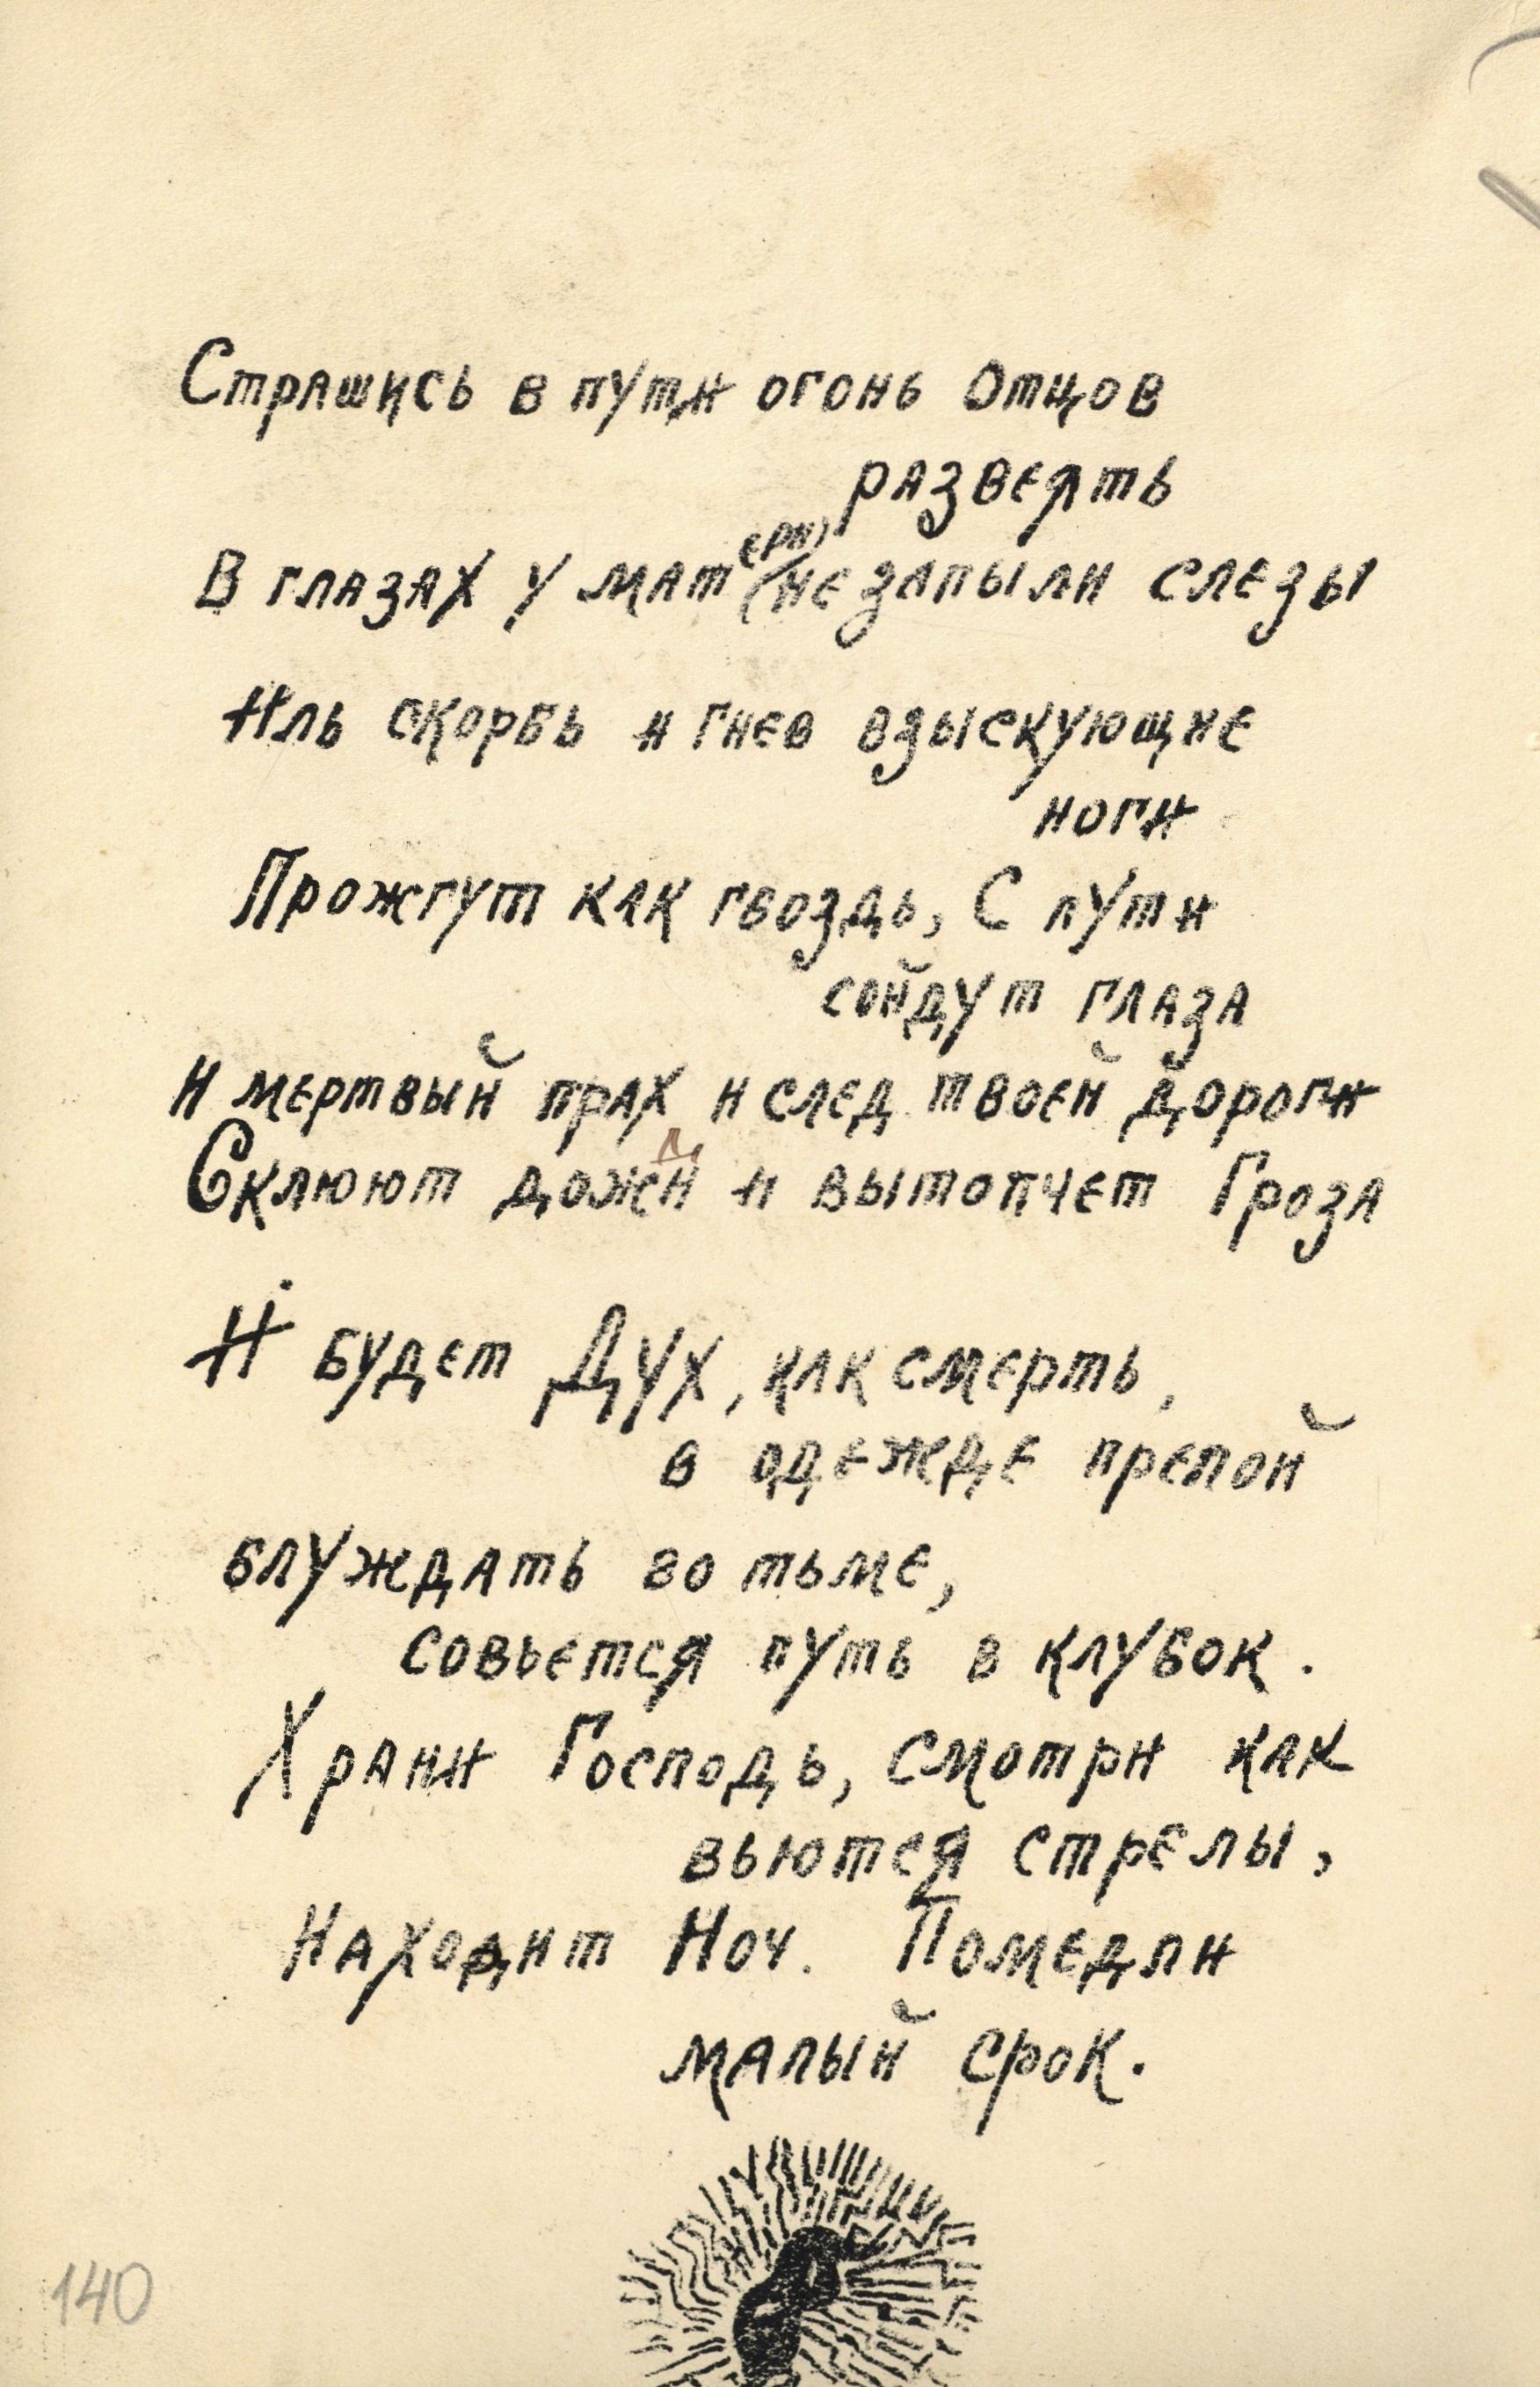 Страшись в пути огонь Отцов
развеять
В глазах у матери не запыли слезы
Иль скорбь и гнев взыскующие
ноги
Прожгут как гвоздь, С пути
сойдут глаза
И мертвый прах и след твоей дороги
Склюют дожди и вытопчет Гроза
И будет Дух, как смерть,
в одежде прелой
блуждать во тьме,
совьется путь в клубок.
Храни Господь, смотри как
вьются стрелы,
Находит Ноч. Помедли
малый срок.
140